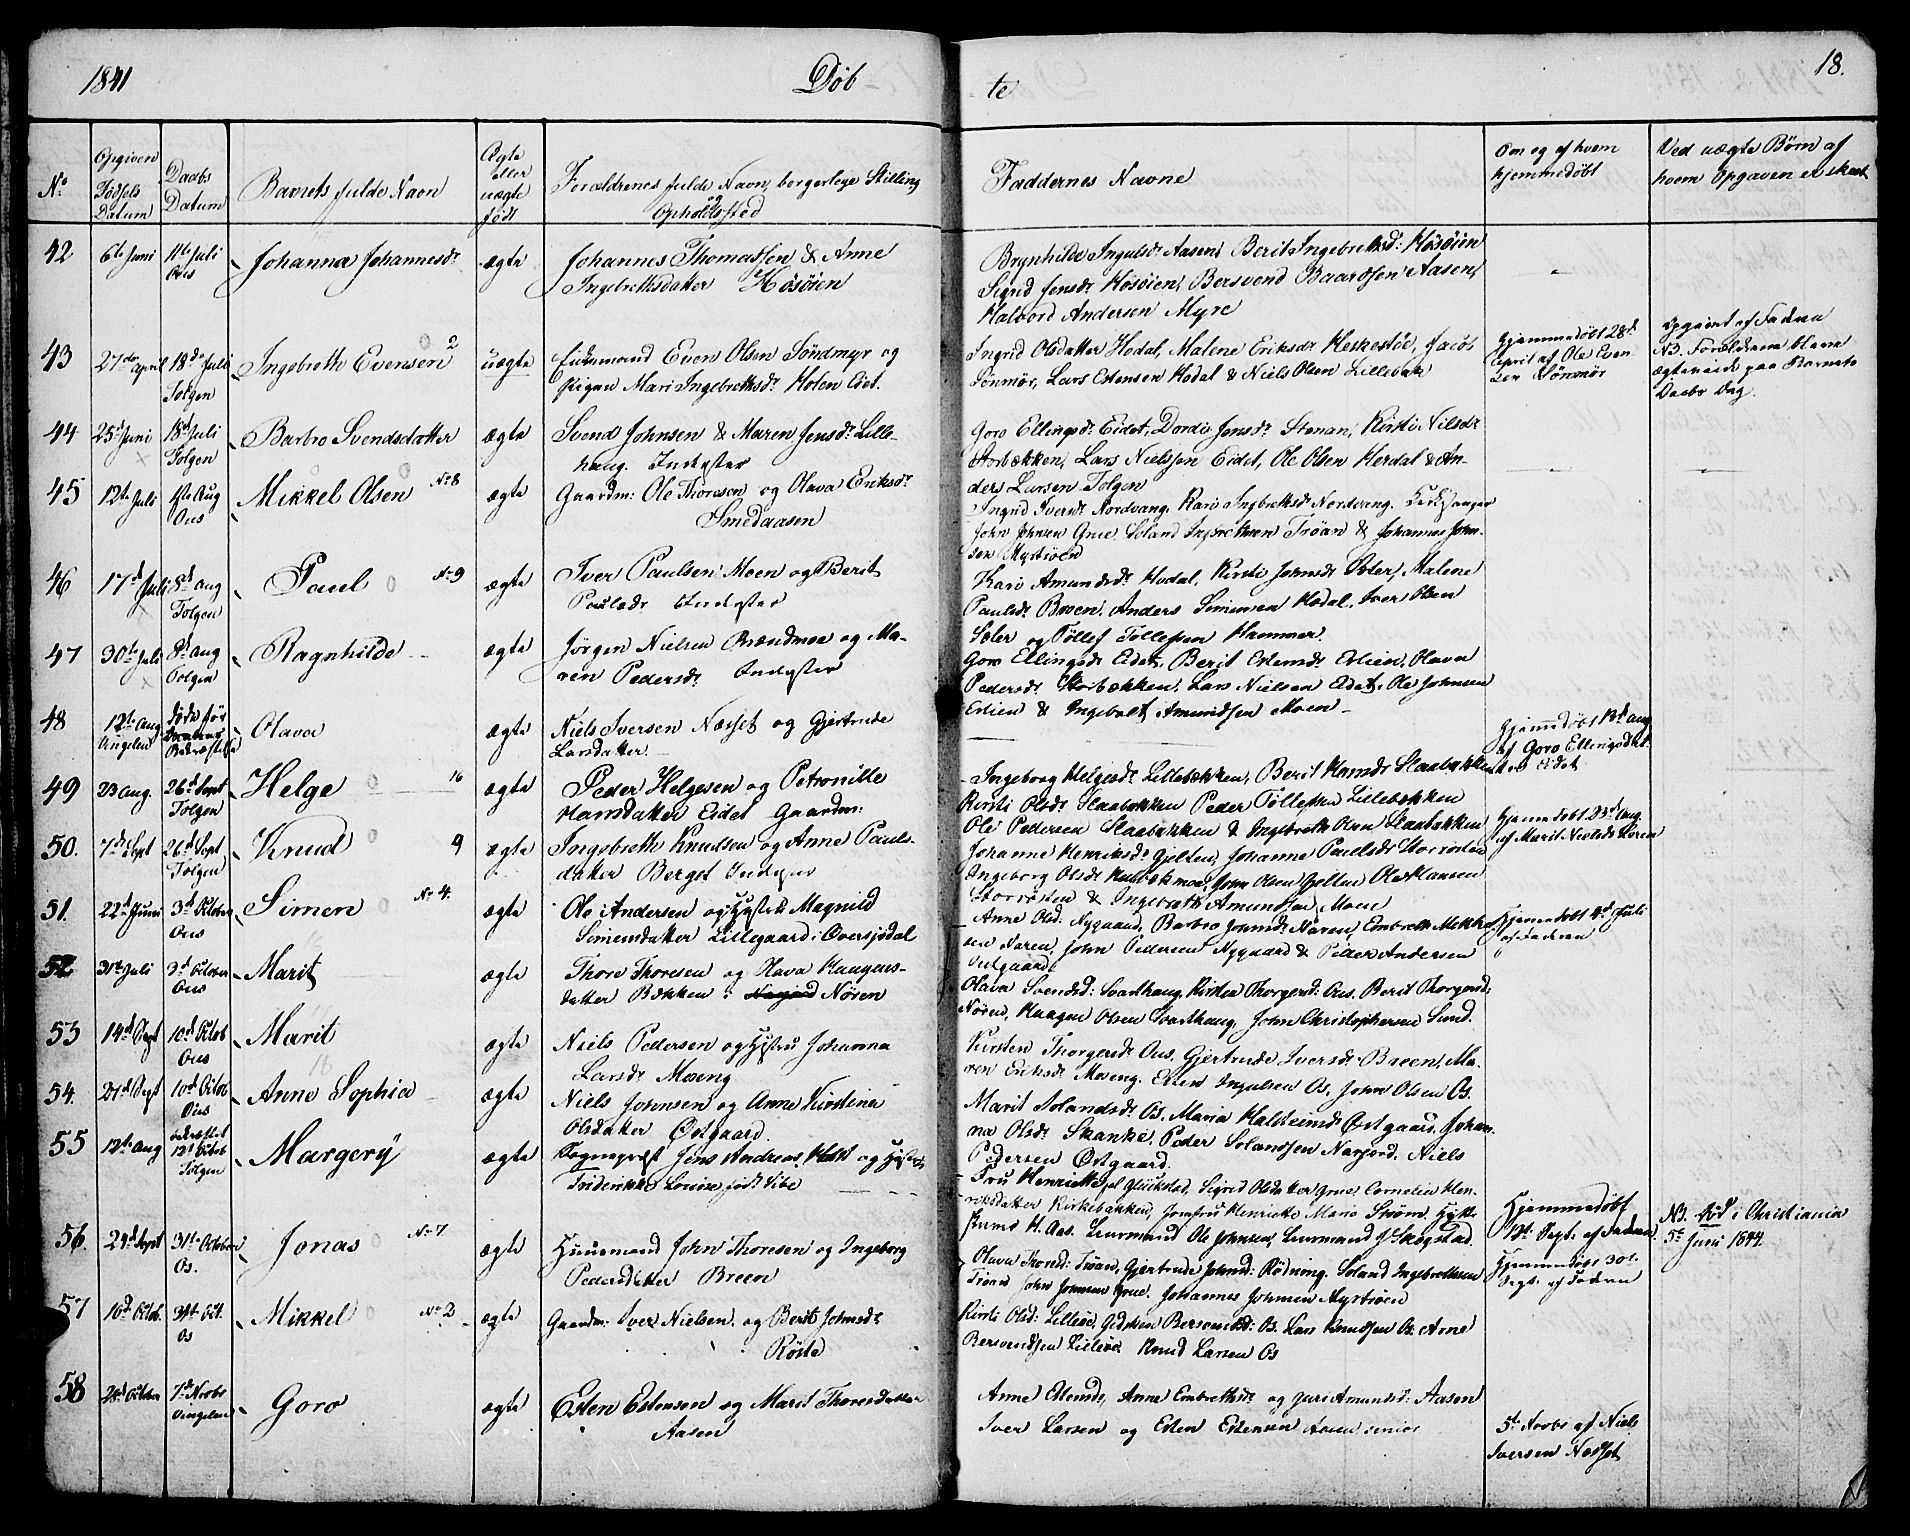 1841 Døb- -te 18.
No Opgiven Fødsels Datum Daabs Datum Barnets fulde Navn Ægte eller uægte født Forældrenes fulde Navn, borgerlige Stilling og Opholdssted Faddernes Navne Om og af hvem hjemmedøbt Ved uægte Børn af hvem Opgaven er skeet
42 6te Juni 11te Juli Ous Johanna Johannesdr ægte Johannes Thomassen & Anne
Ingebrethsdatter Høsøien
Brynhilde Ingulsdr Aasen, Berit Ingebrethsd: Høsøien
Sigrid Jensdr Høsøien, Bersvend Baardsen Aasen,
Halvord Andersen Myre
43 27de April 18de Juli Tolgen Ingebreth Evensen 2 uægte Even Olsen Søndmyr og
Pigen Mari Ingebrethsdr Holen Eidet.
Ingrid Olsdatter Hodal, Malene Eriksdr Heskestøe, Jacob
Sønmør, Lars Estensen Hodal & Niels Olsen Lillebæk
Hjemmedøbt 28d
April af Ole Even
sen Sønmør
Opgivet af Faderen
NB. Forældrene bleve
ægteviede paa Barnets
Daabs Dag.
44 25d Juni 18d Juli Tolgen Barbro Svendsdatter ægte Svend Johnsen & Maren Jensdr Lille-
haug. Inderster
Goro Ellingsdr Eidet, Dordi Jensdr Stenan, Kirsti Nilsdr
Storbækken, Lars Nielssen Eidet, Ole Olsen Herdal & An-
ders Larsen Tolgen
45 12te Juli 1ste Aug Ous Mikkel Olsen No 8 ægte Gaardm: Ole Thoresen og Olava Eriksdr
Smedaasen
Ingrid Iversdr Nordvang. Kari Ingbrethsdr Nordvang. Kirkesanger
John Johnsen Grue Soland Ingbrethsen Trøan & Johannes John-
sen Nystrøen
46 17d Juli 8d Aug Tolgen Paul No 9 ægte Iver Paulsen Moen og Berit
Paulsdr Inderster
Kari Amundsdr Hodal, Kirsti Johnsdr Sæter, Malene
Paulsdr Breen, Anders Simensen Hodal, Iver Olsen
Sæter og Tøllef Tøllefsen Hammer.
47 30te Juli 8d Aug Tolgen Ragnhilde ægte Jørgen Nielsen Brændmoe og Ma-
ren Pedersdr Inderster
Goro Ellingsdr Eidet, Berit Estensdr Erlien, Olava
Pedersdr Storbækken, Lars Nielsen Eidet, Ole Johnsen
Erlien & Ingebolt Amundsen Moen
48 12te Aug døde før Olava ægte Niels Iversen Næsset og Gjertrude
Larsdatter.
Hjemmedøbt 13d Aug
af Goro Ellingsdat
ter Eidet
49 23 Aug. 26d Sept Tolgen Helge 16 ægte Peder Helgesen og Petronille
Hansdatter Eidet Gaardm:
Ingeborg Helgesdr Lillebækken, Berit Hansdr Slaabækken
Kirsti Olsdr Slaabækken Peder Tøllefsen Lillebækken
Ole Pedersen Slaabækken & Ingebreth Olsen Slaabækken
Hjemmedøbt 23d Aug.
af Marit Nielsdr
50. 7d Sept 26d Sept Tolgen Knud 9 ægte Ingebreth Knudsen og Anne Pauls-
datter Berget Inderster
Johanne Henriksdr Gjelten, Johanne Paulsdr Storrøsten
Ingeborg Olsdr Kubbekmoe, John Olsen Gjelten Ole Hansen
Storrøsten & Ingebreth Amundsen Moen
51. 22d Juni 3d October Ous Simen No 4. ægte Ole Andersen og Hustrue Magnild
Simensdatter Lillegaard i Øversjødal
Anne Olsd: Nygaard, Barbro Johnsdr Naren, Embreth Mikkel
sen Naren, John Pedersen Nygaard & Peder Andersen
Vestgaard
Hjemmedøbt 4d Juli
af Faderen
52 31te Juli 3d October Ous Marit ægte Thore Thoresen og Olava Haagens-
datter Bækken i Nøren
Olava Svendsd: Svarthaug, Kirsten Thorgersd: Ous, Berit Thorgersd:
Nøren, Haagen Olsen Svarthaug, John Christophersen Sund.
53 14d Sept 10d Octob Ous Marit ægte Niels Pedersen og Hustru Johanna
Larsdr Moseng
Kirsten Thorgersdr Ous, Gjertrude Iversdr Breen, Ma-
ren Eriksdr Moseng. Esten Ingulsen Os, John Olsen Os.
54. 21d Sept 10d Octob Ous Anne Sophia ægte Niels Johnsen og Anne Kirstina
Olsdatter Østgaard.
Marit Solandsdr Os, Maria Haldsteinsdr Østgaard, Johan-
ne Olsdr Skanke, Peder Solandsen Narjord, Niels
Pedersen Østgaard.
55 12te Aug 12t Octob Tolgen Margery ægte Sogneprest Jens Andreas Holst og Hustru
Friderikke Louise født Vibe
Fru Henriette Glückstad, Sigrid Olsdatter Grue, Cornelia Hen-
riksdatter Kirkebækken, Jomfru Henriette Maria Strøm,
H. Aas. Leursmand Ole Johnsen, Leursmand J Skogstad
Hjemmedøbt
12t. Sept. af Faderen
NB. død i Christiania
5te Juni 1844.
56. 29d Sept 31te October Os. Jonas No 7 ægte Huusmand John Thoresen og Ingeborg
Pedersdatter Breen
Olava Thoresd: Trøan, Gjertrude Johnsd: Rødning. Soland Ingebrethsen
Trøan John Johnsen Grue. Johannes Johnsen Nystrøen
Hjemmedøbt 30t.
Sept. af Faderen
57 10d Octob. 31te Oct. Os Mikkel No 2 ægte Gaardm: Iver Nielsen og Berit Johnsdr
Røste
Kirsti Olsd: Lilleøe, Gidsken Bersvendsd: Os Lars Knudsen Os. Arne
Bersvendsen Lilleøe Knud Larsen Os
58 28d October 7d Novbr Vingelen Goro ægte Esten Estensen og Marit Thoresdatter
Aasen
Anne Estensdr, Anne Embrethsdr og Guri Amundsd: Aasen
Iver Larsen og Esten Estensen Aasen senior
5te Novbr af Niels
Iversen Næsset